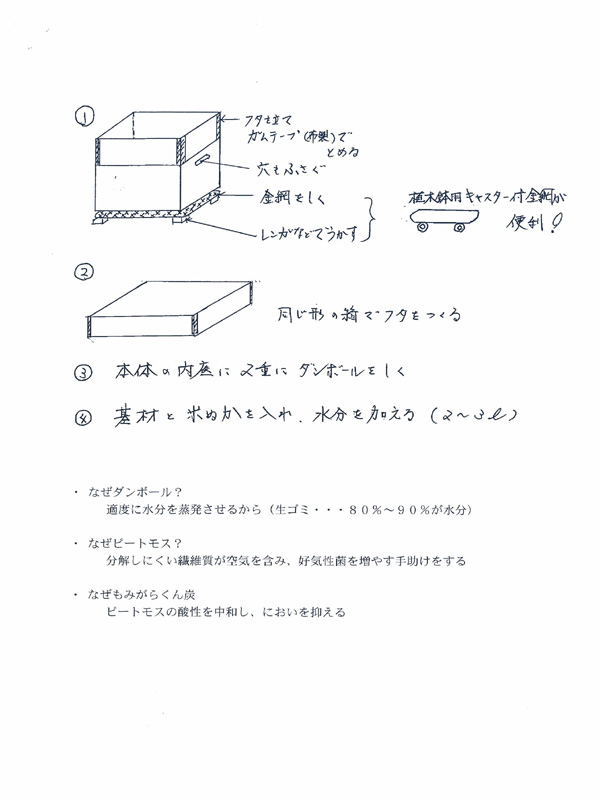 ①
フタを立て
ガムテープ(布製)で
とめる
穴もふさぐ
金網をしく
レンガなどでうかす
植木鉢用キャスター付金網が
便利!
②
同じ形の箱でフタをつくる
③ 本体の内底に2重にダンボールをしく
④ 基材と米ぬかを入れ、水分を加える(2~3ℓ)
・ なぜダンボール?
適度に水分を蒸発させるから(生ゴミ・・・80%~90%が水分)
・ なぜピートモス?
分解しにくい繊維質が空気を含み、好気性菌を増やす手助けをする
・ なぜもみがらくん炭
ピートモスの酸性を中和し、においを抑える